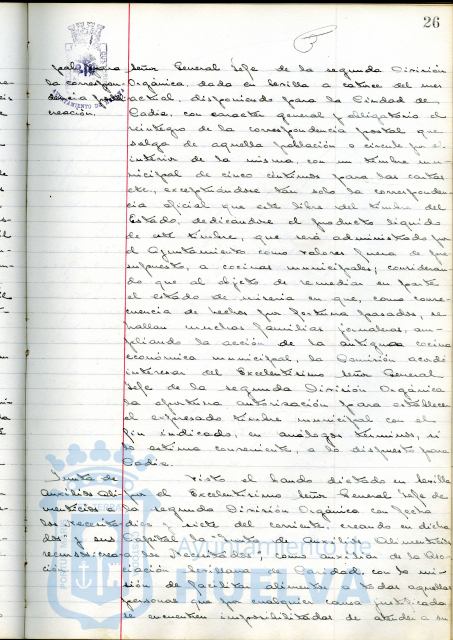 26
señor General Jefe de la segunda División
Orgánica, dada en Sevilla a catorce del mes
actual, disponiendo para la Ciudad de
Cadiz, con caracter general y obligatorio el
reintegro de la correspondencia postal que
salga de aquella población o circule por el
interior de la misma, con un timbre mu-
nicipal de cinco céntimos para las cartas
etc, exceptuándose tan solo la corresponden-
cia oficial que esté libre del timbre del
Estado, dedicándose el producto líquido
de este timbre, que será administrado por
el Ayuntamiento como valores fuera de pre-
supuesto, a cocinas municipales; consideran-
do que al objeto de remediar en parte
el estado de miseria en que, como conse-
cuencia de hechos por fortuna pasados, se
hallan muchas familias jornaleras, am-
pliando la acción de la antigua cocina
económica municipal, la Comisión acordó
interesar del Excelentísimo señor General
Jefe de la segunda División Orgánica
la oportuna autorización para establecer
el expresado timbre municipal con el
fin indicado, en análogos términos, si
lo estima conveniente, a lo dispuesto para
Cadiz.
Visto el bando dictado en Sevilla
por el Excelentísimo señor General Jefe de
la segunda División Orgánica con fecha
diez y siete del corriente, creando en dicha
Capital la Junta de Auxilios Alimenticios
a los necesitados, como auxiliar de la Aso-
ciación Sevillana de Caridad, con la mi-
sión de facilitar alimentos a todas aquellas
personas que por cualquier causa justificada
se encuentren imposibilitados de atender a su
para
la correspon-
dencia postal
creación.
Junta de
Auxilios Ali-
menticios a
los "necesita-
dos" y sus
recursos: crea-
ción
Ayuntamiento de
HUELVA